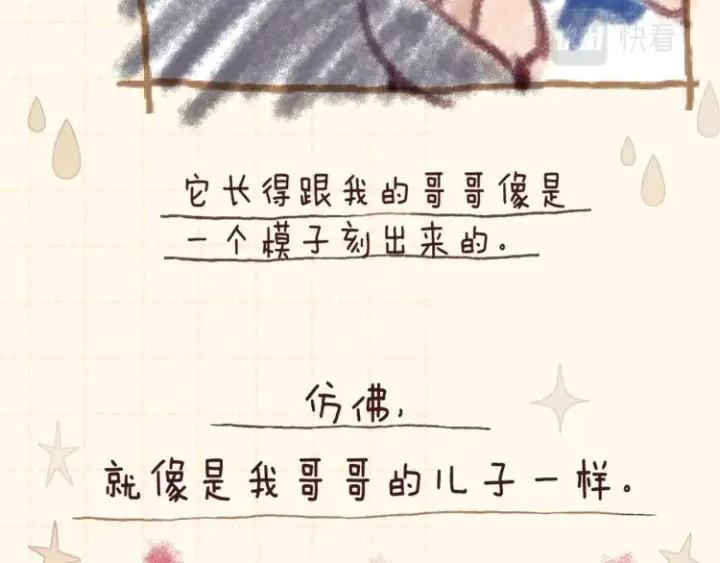 快看
它长得跟我的哥哥像是
一个模子刻出来的。
仿佛，
就像是我哥哥的儿子一样。